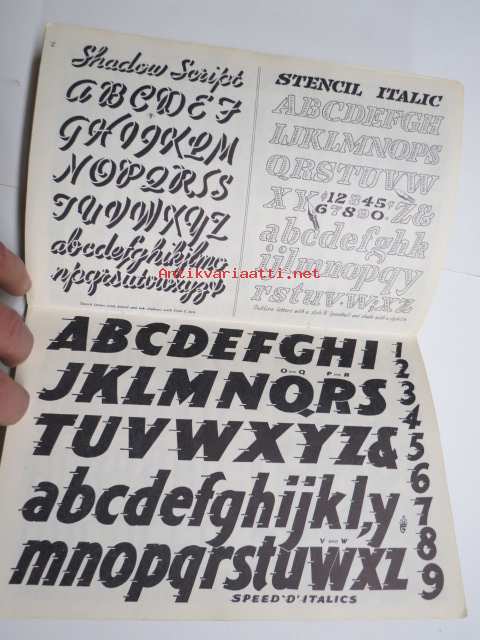 Shadow Script
ABCDEF
GHIJKLM
NOPQRSS
TUVWXYZ
abcdefghijklmc
nopqrstuvwxyz
STENCIL ITALIC
ABCDEFGH
IJKLMNOP
QRSTUVW
XY $12345¢ Z&
67890
abcdefghk
ijlmnopqy
rstuvwxz
Antikvariaatti.net
ABCDEFGHI 1
O Q P R 2
JKLMNQRS 3
4
TUVWXYZ& 5
6
abcdefghijkl,y 7
V AND W 8
mnopqrstuwxz 9
SPEED "D" ITALICS